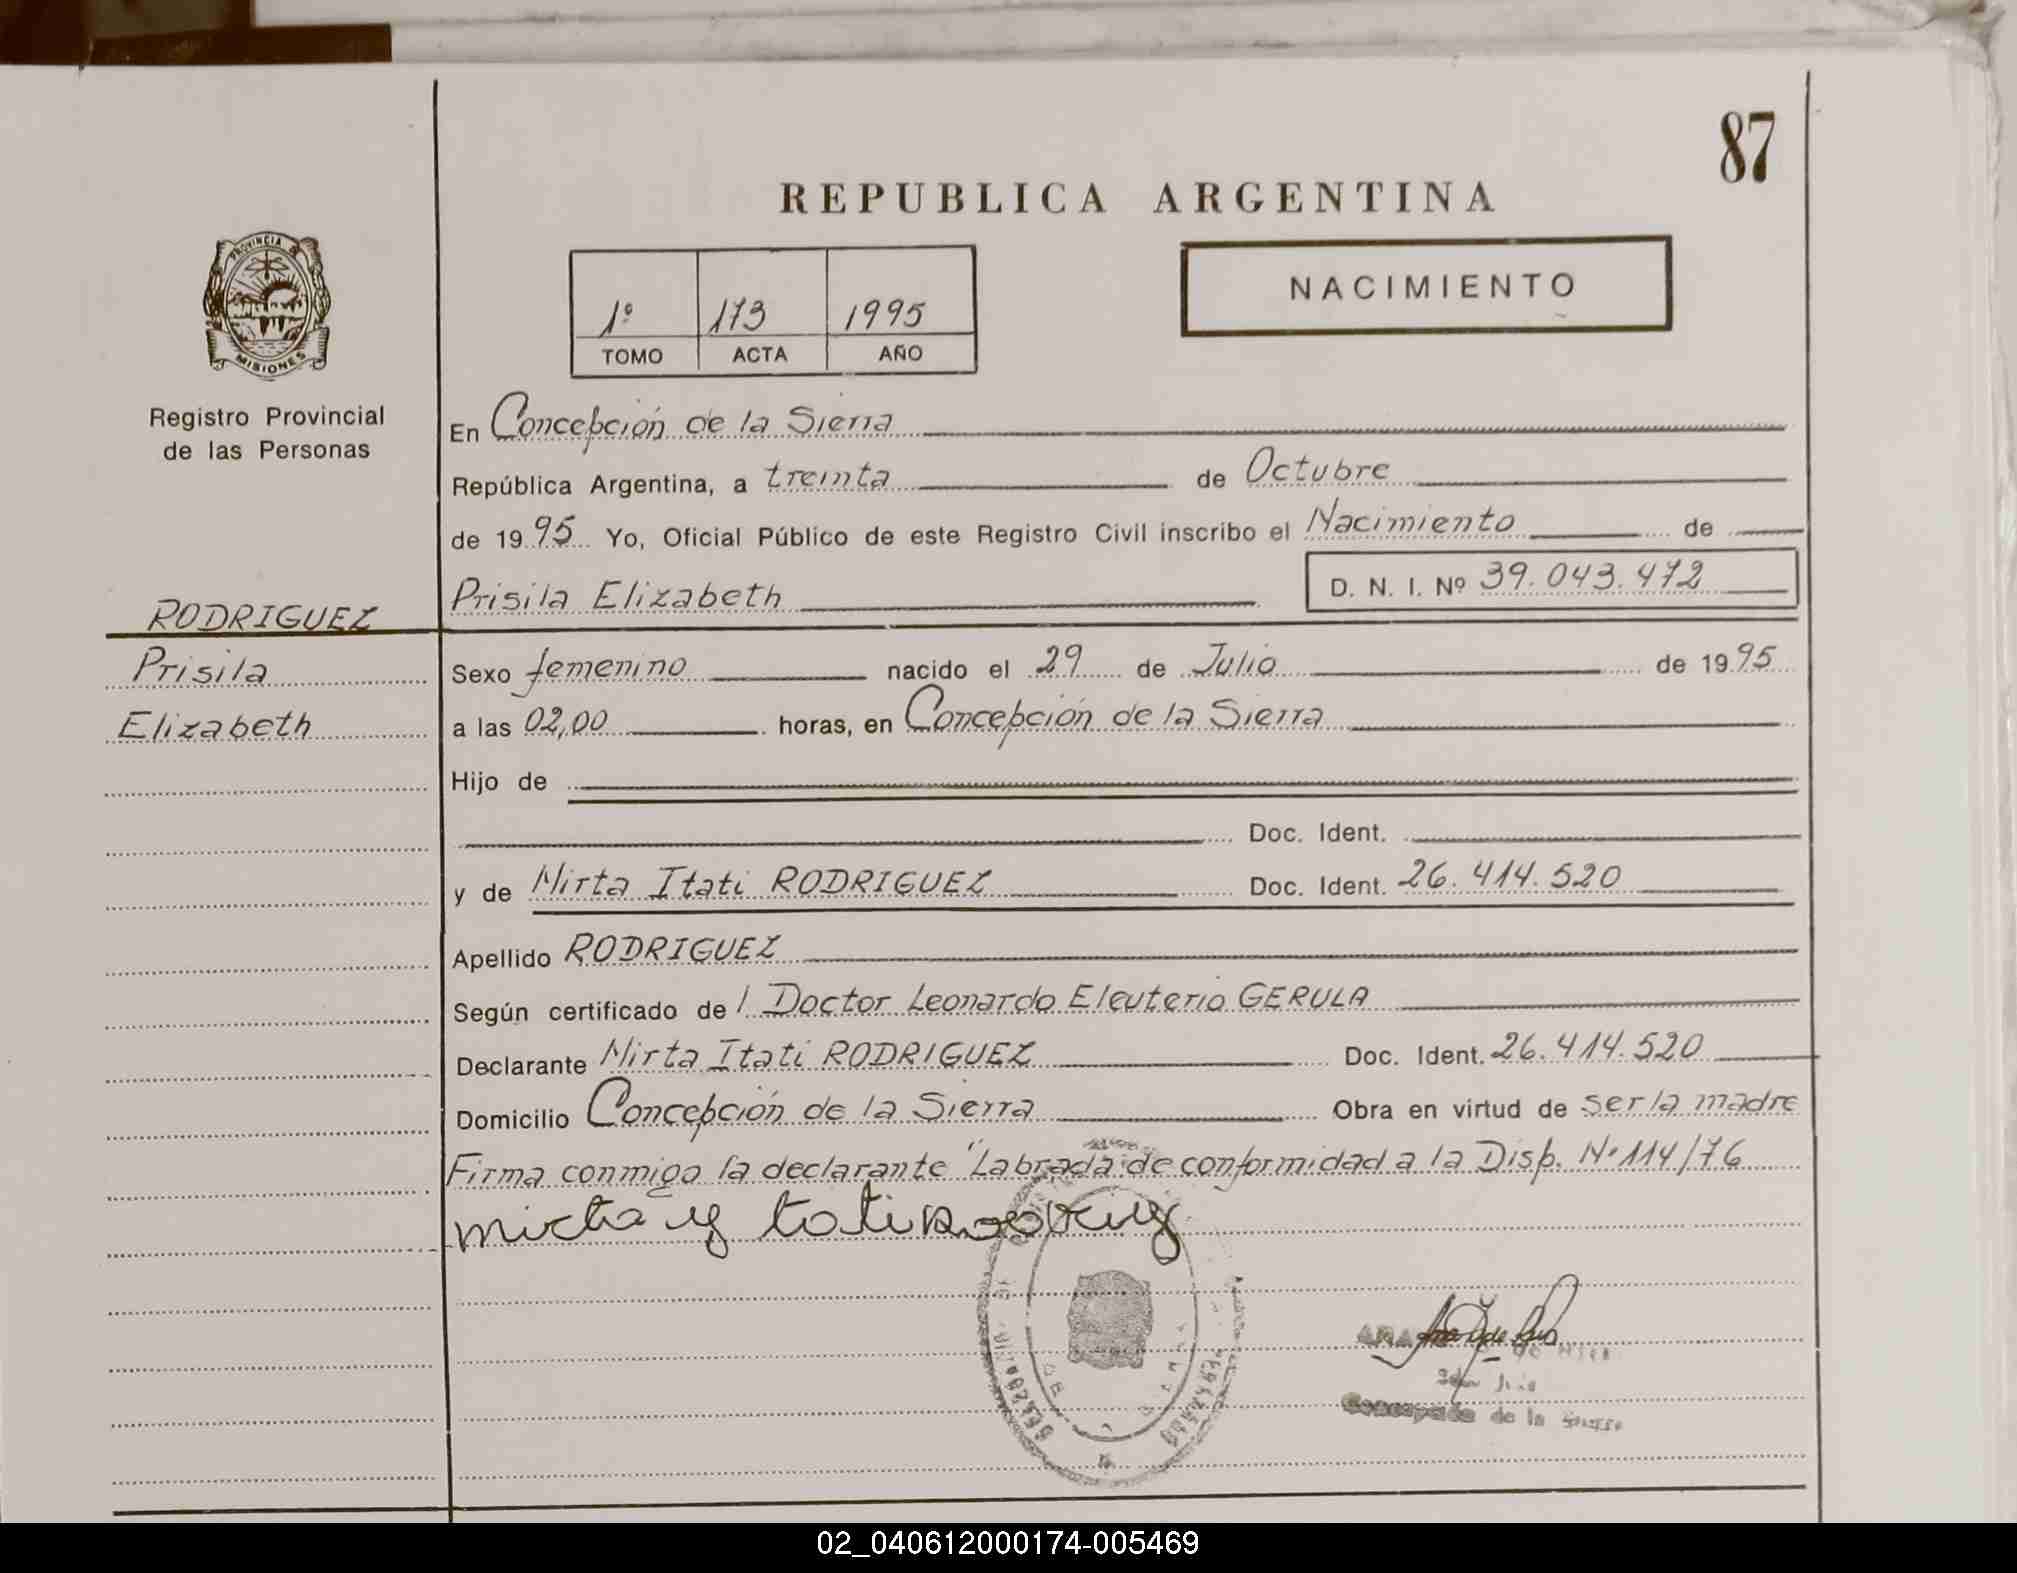 87
REPUBLICA ARGENTINA
PROVINCIA DE
MISIONES
Registro Provincial
de las Personas
NACIMIENTO
1º 173 1995
TOMO ACTA AÑO
En Concepción de la Sierra
República Argentina, a treinta de Octubre
de 1995 Yo, Oficial Público de este Registro Civil inscribo el Nacimiento de
Prisila Elizabeth D. N. I. Nº 39.043.472
RODRIGUEZ
Prisila
Elizabeth
Sexo femenino nacido el 29 de Julio de 1995
a las 02,00 horas, en Concepción de la Sierra
Hijo de
Doc. Ident.
y de Mirta Itati RODRIGUEZ Doc. Ident. 26.414.520
Apellido RODRIGUEZ
Según certificado de / Doctor Leonardo Eleuterio GERULA
Declarante Mirta Itati RODRIGUEZ Doc. Ident. 26.414.520
Domicilio Concepción de la Sierra Obra en virtud de ser la madre
Firma conmigo la declarante "Labrada de conformidad a la Disp. Nº 114/76
Concepción de la Sierra
02_040612000174-005469